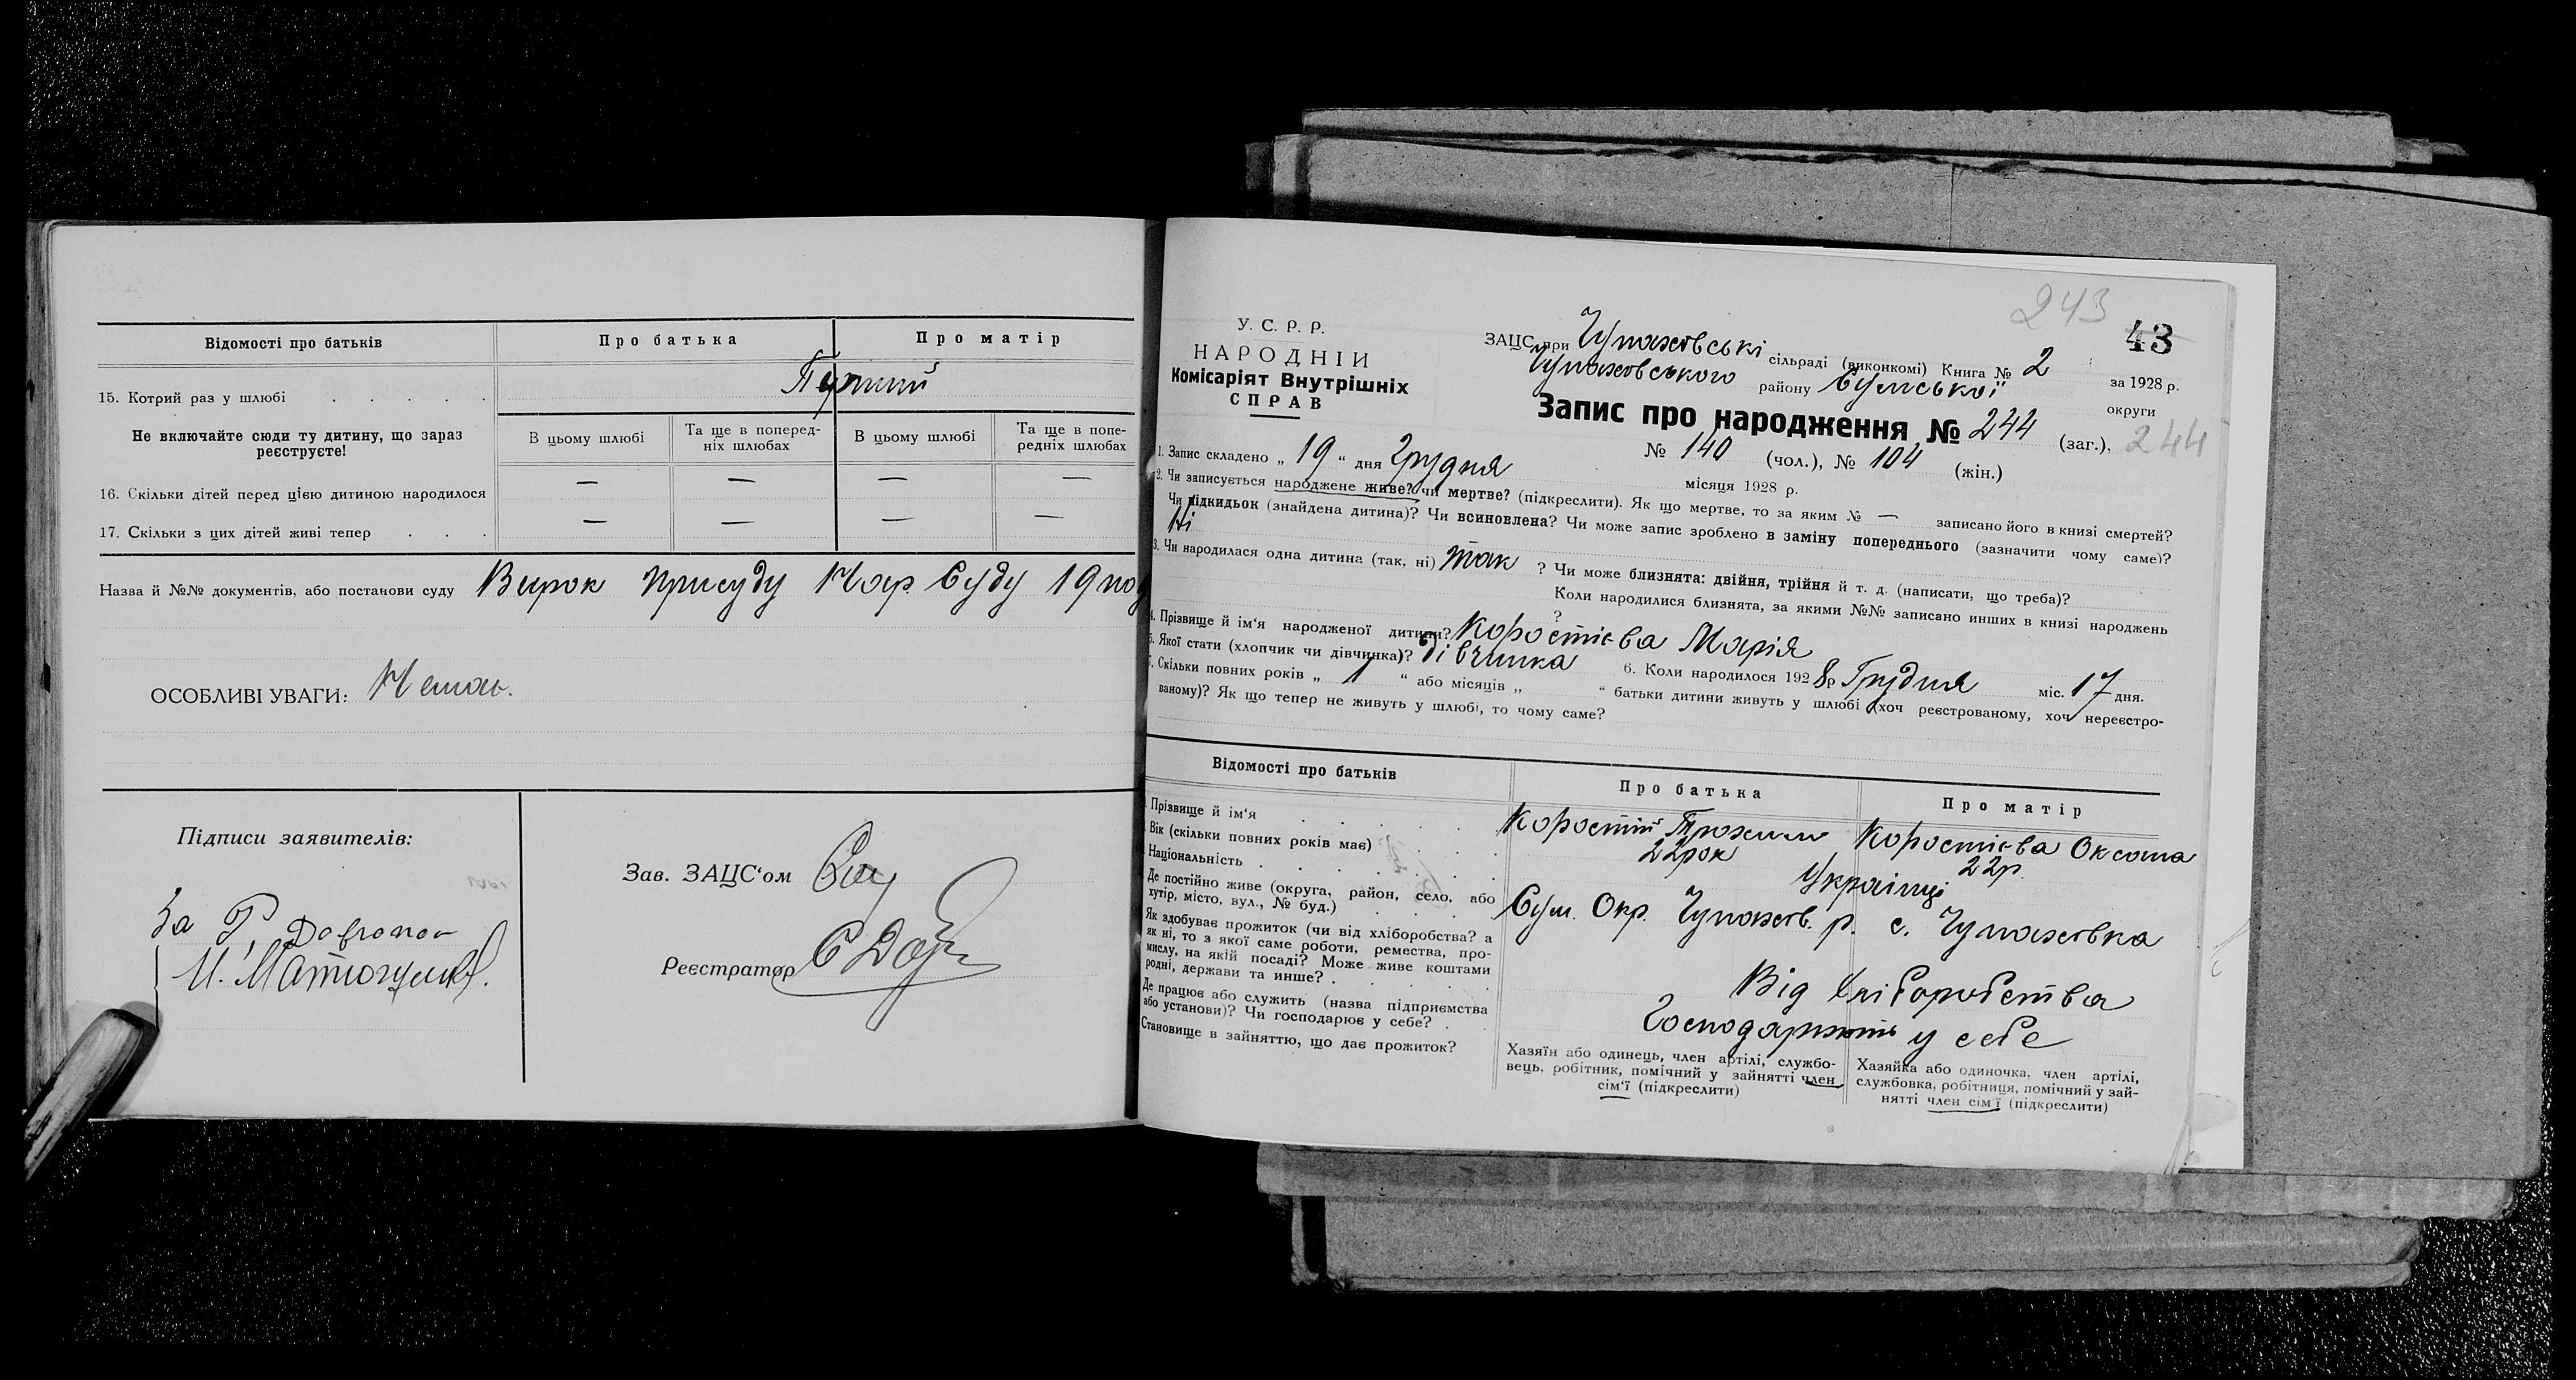 Відомості про батьків
Про батька
Про матір
15. Котрий раз у шлюбі . . . . .
Перший
Не включайте сюди ту дитину, що зараз
реєструєте!
В цьому шлюбі
Та ще в поперед-
ніх шлюбах
В цьому шлюбі
Та ще в попе-
редніх шлюбах
16. Скільки дітей перед цією дитиною народилося — — — —
17. Скільки з цих дітей живі тепер . . . — — — —
Назва й №№ документів, або постанови суду Вирок присуду Нар Суду 19
ОСОБЛИВІ УВАГИ: Немає.
Підписи заявителів:
За
Зав. ЗАЦС'ом
Реєстратор
243
43
У. С. Р. Р.
НАРОДНІЙ
Комісаріят Внутрішніх
СПРАВ
ЗАЦС при Чупахівські сільраді (виконкомі) Книга № 2 за 1928 р.
Чупахівського району Сумської округи
Запис про народження № 244 (заг.), 244
№ 140 (чол.), № 104 (жін.)
1. Запис складено „ 19 “ дня Грудня місяця 1928 р.
2. Чи записується народжене живе? чи мертве? (підкреслити). Як що мертве, то за яким № — записано його в книзі смертей?
Чи підкидьок (знайдена дитина)? Чи всиновлена? Чи може запис зроблено в заміну попереднього (зазначити чому саме)?
Ні
3. Чи народилася одна дитина (так, ні) так ? Чи може близнята: двійня, трійня й т. д. (написати, що треба)?
? Коли народилися близнята, за якими №№ записано инших в книзі народжень
4. Прізвище й ім'я народженої дитини? Коростієва Марія
5. Якої стати (хлопчик чи дівчинка)? дівчинка 6. Коли народилося 1928р Грудня міс. 17 дня.
7. Скільки повних років „ 1 “ або місяців „ “ батьки дитини живуть у шлюбі (хоч реєстрованому, хоч нереєстро-
ваному)? Як що тепер не живуть у шлюбі, то чому саме?
Відомості про батьків
Про батька
Про матір
Прізвище й ім'я . . . . . Коростій Трохим Коростієва Оксана
Вік (скільки повних років має) . . . 22рок 22р.
Національність . . . . . . . Українці
Де постійно живе (округа, район, село, або
хутір, місто, вул., № буд.) . . . .
Сум. Окр. Чупахів. р. с. Чупахівка
Як здобуває прожиток (чи від хліборобства? а
як ні, то з якої саме роботи, ремества, про-
мислу, на якій посаді? Може живе коштами
родні, держави та инше? . . . . .
Від хліборобства
Де працює або служить (назва підприємства
або установи)? Чи господарює у себе? . .
Господарюють у себе
Становище в зайняттю, що дає прожиток?
Хазяїн або одинець, член артілі, службо-
вець, робітник, помічний у зайнятті член
сім'ї (підкреслити)
Хазяйка або одиночка, член артілі,
службовка, робітниця, помічний у зай-
нятті член сім'ї (підкреслити)